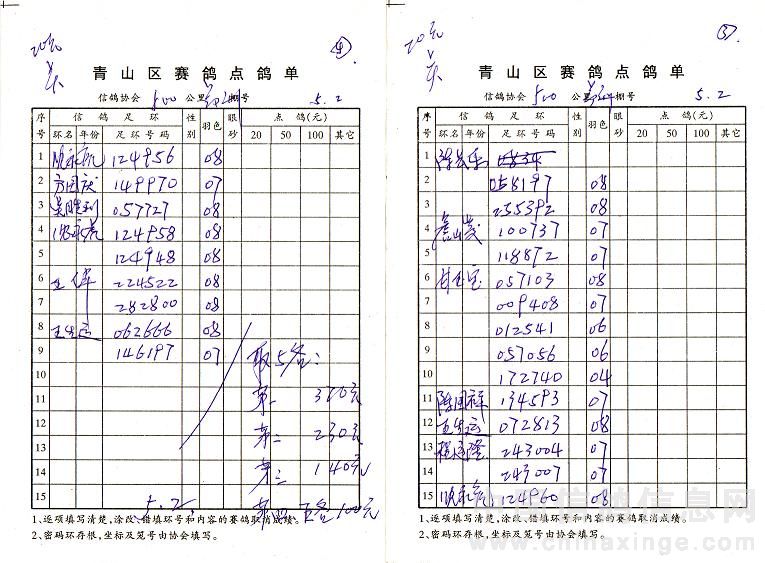 20元
④
青山区赛鸽点鸽单
信鸽协会 500 公里 棚号 5.2
序号 信鸽足环 性别 羽色 眼砂 点鸽(元)
环名 年份 足环号码 20 50 100 其它
1 124956 08
2 方国庆 149970 07
3 吴胜利 057727 08
4 124958 08
5 124948 08
6 王军 224522 08
7 282800 08
8 王生运 062666 08
9 146197 07 取5名:
10
11 第一 370元
12 第二 230元
13
14 第三 140元
15 5.2 第四 五各100元
1、逐项填写清楚,涂改、错填环号和内容的赛鸽取消成绩。
2、密码环存根,坐标及笼号由协会填写。
20元
⑤
青山区赛鸽点鸽单
信鸽协会 500 公里 棚号 5.2
序号 信鸽足环 性别 羽色 眼砂 点鸽(元)
环名 年份 足环号码 20 50 100 其它
1 0834
2 058197 08
3 255392 08
4 詹山茂 100737 07
5 118872 07
6 甘金宝 057103 08
7 009408 07
8 012541 06
9 057056 06
10 172740 04
11 陈国祥 134593 07
12 王生运 072813 08
13 程远隆 243004 07
14 243007 07
15 124960 08
1、逐项填写清楚,涂改、错填环号和内容的赛鸽取消成绩。
2、密码环存根,坐标及笼号由协会填写。
中国信鸽信息网
www.chinaxinge.com